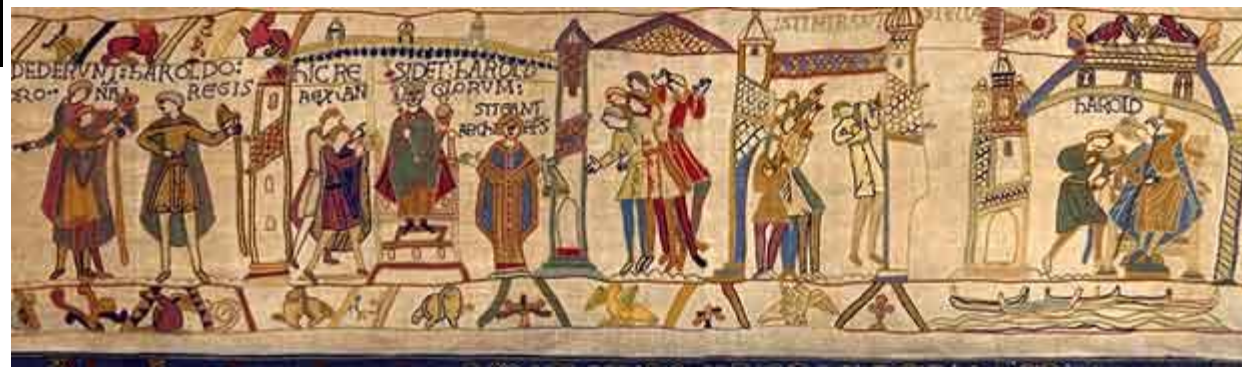 DEDERVNT: hAROLDO:
RO NA REGIS
hIC RE SIDET: hAROLD
REX AN GLORVM:
STIGANT
ARChIEPS
ISTI MIRANT STELLA
hAROLD